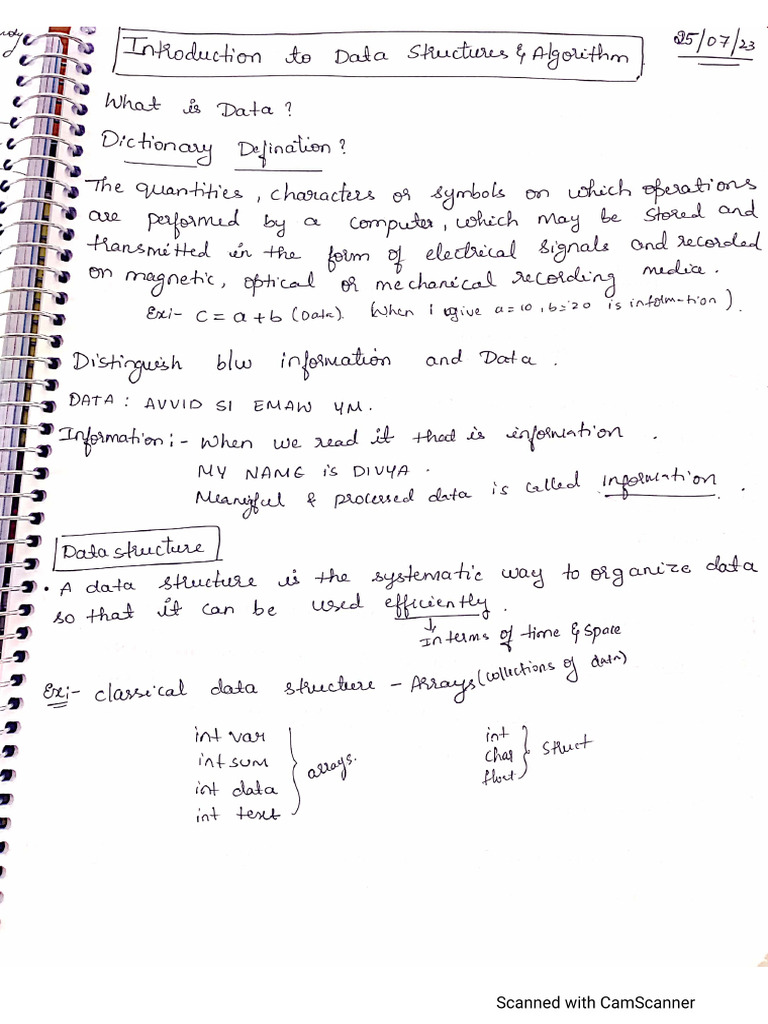 25/07/23
Introduction to Data Structures & Algorithm
What is Data?
Dictionary Defination?
The quantities, characters or symbols on which operations
are performed by a computer, which may be stored and
transmitted in the form of electrical signals and recorded
on magnetic, optical or mechanical recording media.
Ex:- c = a + b (Data). When I give a=10, b=20 is information).
Distinguish b/w information and Data.
DATA: AVVID SI EMAW YM.
Information:- When we read it that is information.
MY NAME is DIVYA.
Meanigful & processed data is called information.
Data structure
• A data structure is the systematic way to organize data
so that it can be used efficiently.
↓
Interms of time & space
Ex:- classical data structure - Arrays (collections of data)
int var
int sum
int data
int text
arrays.
int
char
float
struct
Scanned with CamScanner